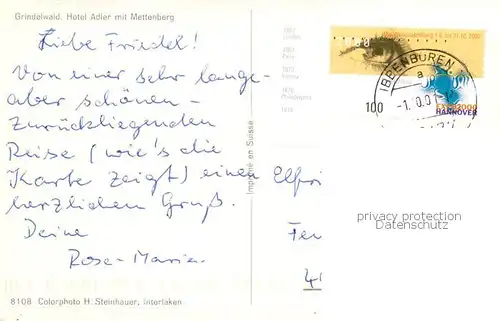 Grindelwald. Hotel Adler mit Mettenberg
Liebe Friedel!
Von einer sehr lange-
aber schönen -
zurückliegenden
Reise (wie's die
Karte zeigt) einen
herzlichen Gruß.
Deine
Rose-Marie.
8108 Colorphoto H. Steinhauer, Interlaken
Imprimé en Suisse
1851
London
1855
Paris
1873
1876
Philadelphia
100
IBBENBÜREN
a
EXPO2000
HANNOVER
Elfri
privacy protection
Datenschutz